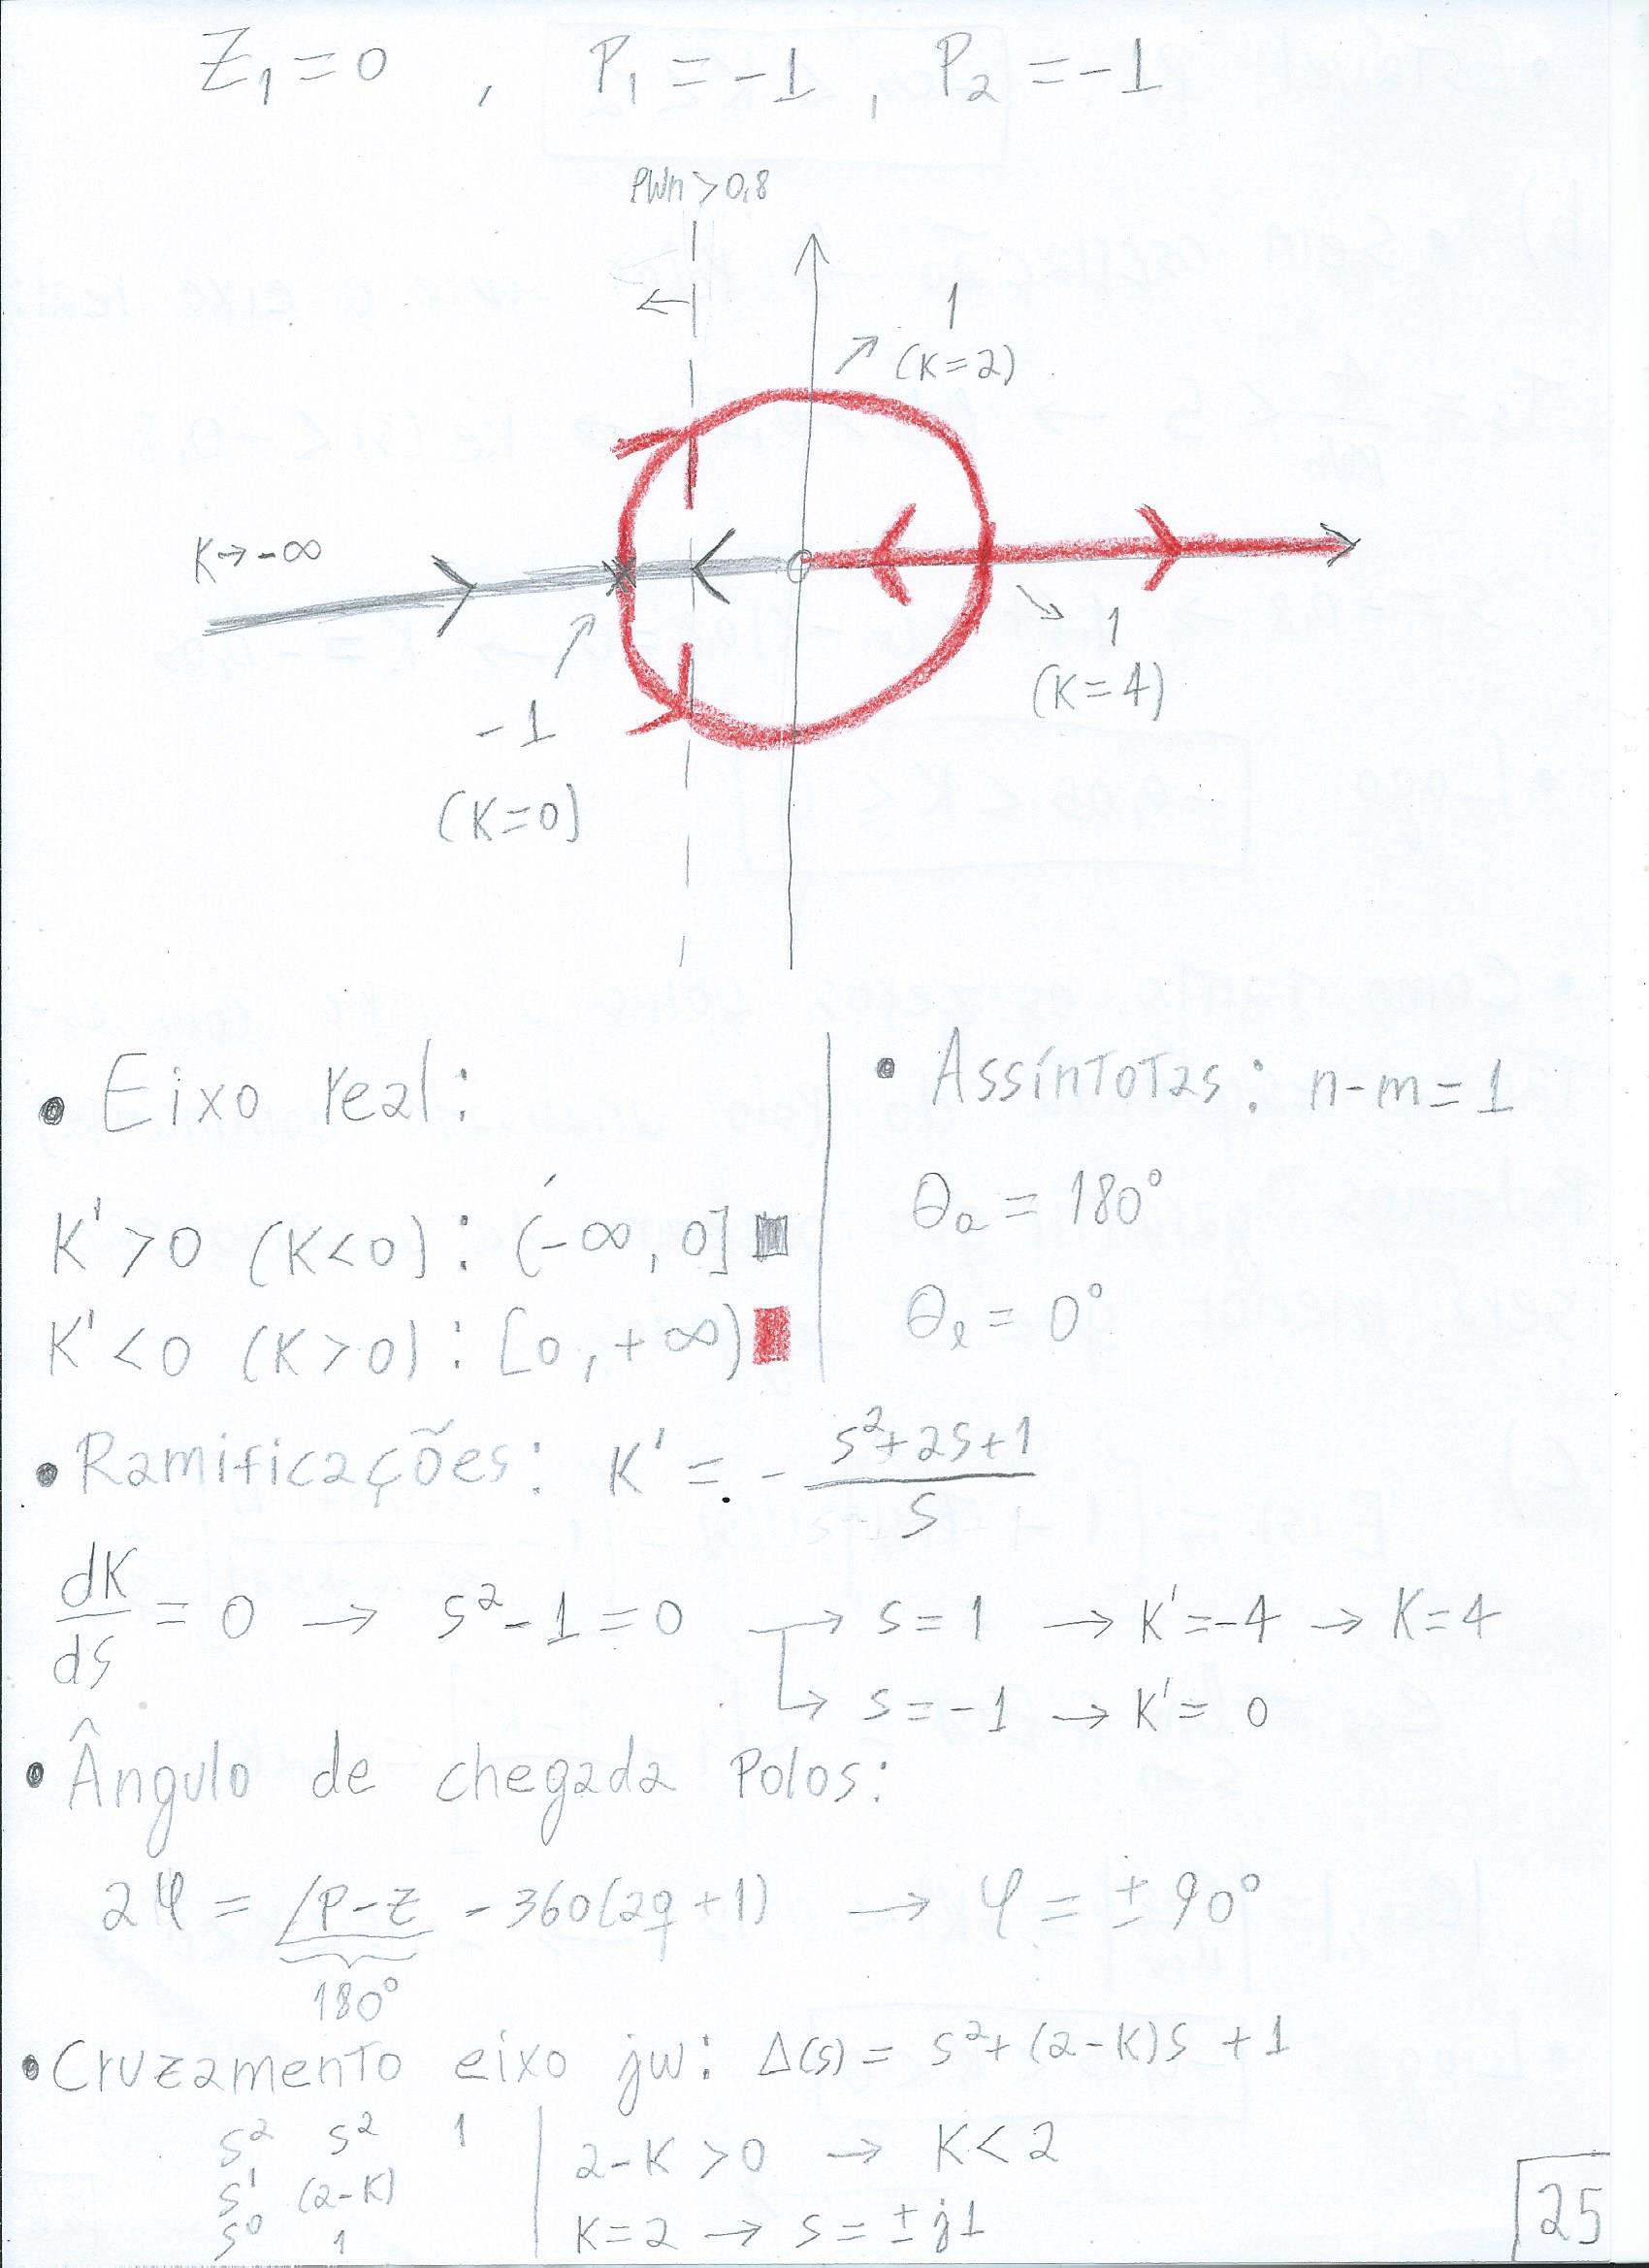 Z₁=0 , P₁=-1, P₂=-1
PWn>0,8
1
(K=2)
K→-∞
1
(K=4)
-1
(K=0)
• Eixo real:
K'>0 (K<0): (-∞, 0]
K'<0 (K>0): [0, +∞)
• Assíntotas: n-m=1
θₐ = 180°
θℓ = 0°
• Ramificações: K' = - (s²+2s+1)/s
dK/ds = 0 → s²-1=0 → s=1 → K'=-4 → K=4
↳ s=-1 → K'= 0
• Ângulo de chegada Polos:
2φ = /P-Z - 360(2q+1) → φ = ±90°
180°
• Cruzamento eixo jw: Δ(s)= s²+(2-K)s +1
s² s² 1
s¹ (2-K)
s⁰ 1
2-K >0 → K<2
K=2 → s=±j1
25